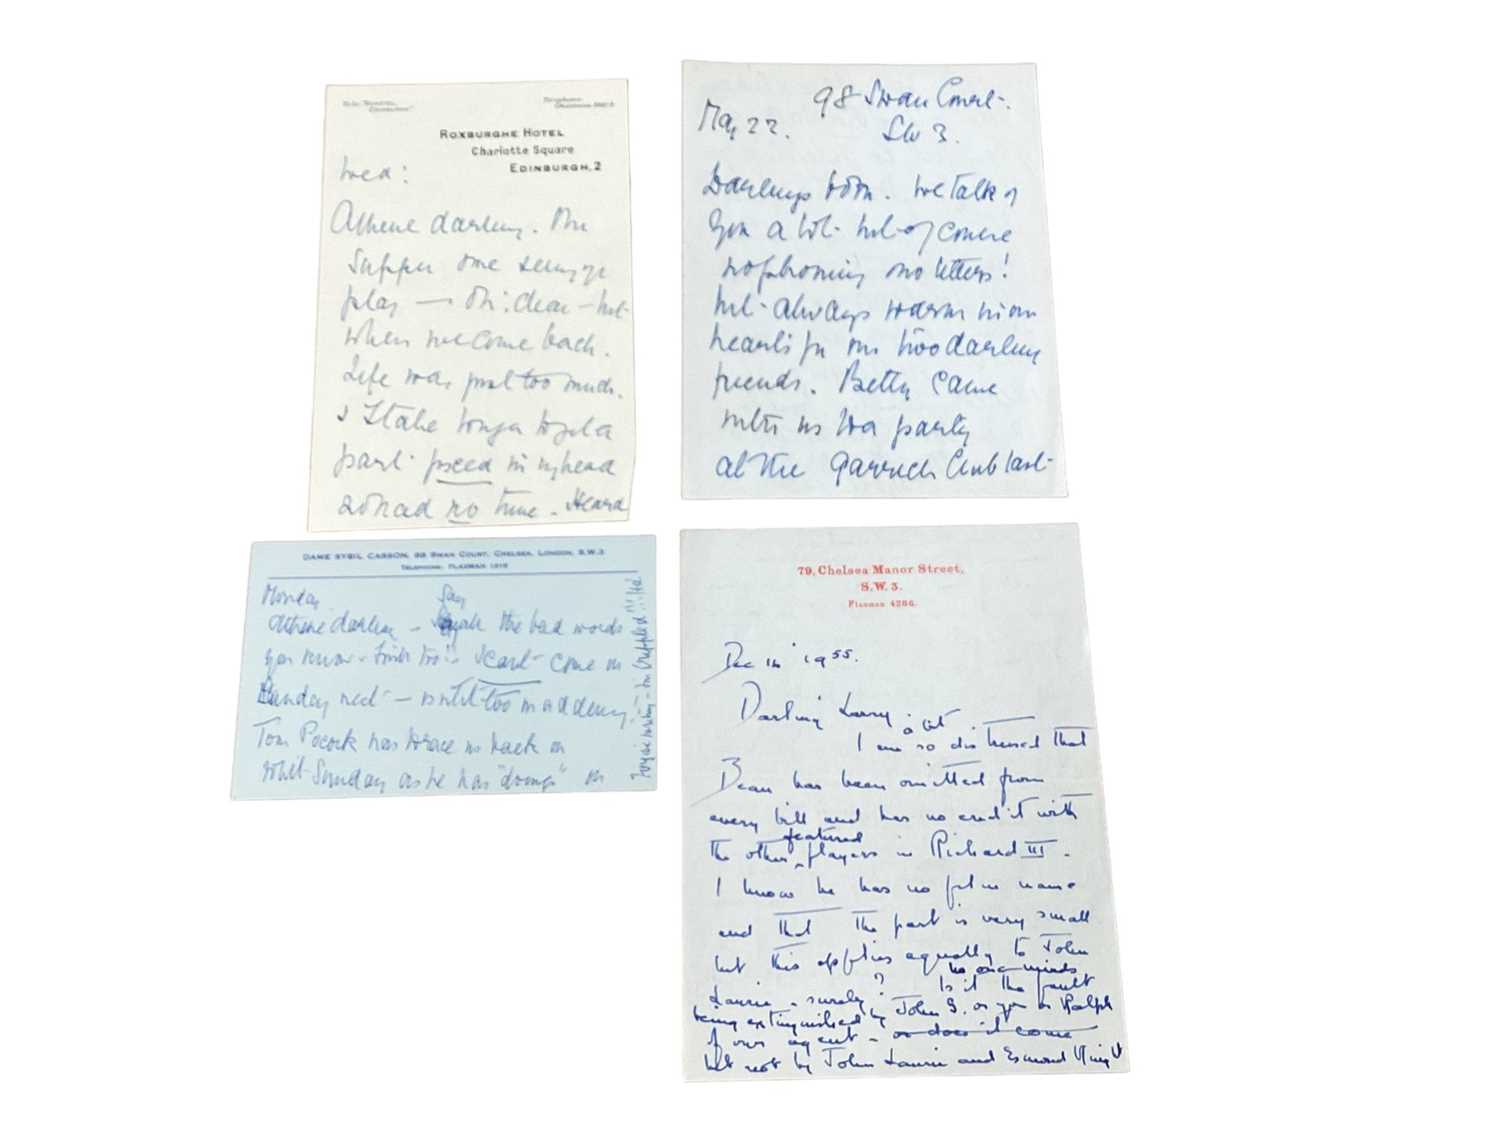 ROXBURGHE HOTEL
Charlotte Square
EDINBURGH, 2
Wed:
Athene darling. Our
supper one seeing
play — Oh: dear — but
when we come back.
Life was just too much.
& I take longer to get a
part fixed in my head
& had no time. Heard
98 Swan Court.
May 22. SW 3.
Darlings both. We talk of
you a lot but of course
no phoning no letters!
but always warm in our
hearts for our two darling
friends. Betty came
with us to a party
at the Garrick Club last
DAME SYBIL CASSON, 98 SWAN COURT, CHELSEA, LONDON, S.W.3
TELEPHONE: FLAXMAN 1315
Monday Say
Athene darling – all the bad words
you know – too! I can't come on
Sunday next — isn't it too maddening!
Tom Pocock has to take us back on
Whit-Sunday as he has "doings" on
79, Chelsea Manor Street,
S.W.3.
Flaxman 4286.
Dec 1955.
Darling Larry
I am so a bit distressed that
Bean has been omitted from
every bill and has no credit with
the other featured players in Richard III.
I know he has no film name
and that the part is very small
but this applies equally to John
Laurie – surely? no one minds
Is it the fault
being extinguished by John G. or you or Ralph
of our agent – or does it come
but not by John Laurie and Esmond Knight